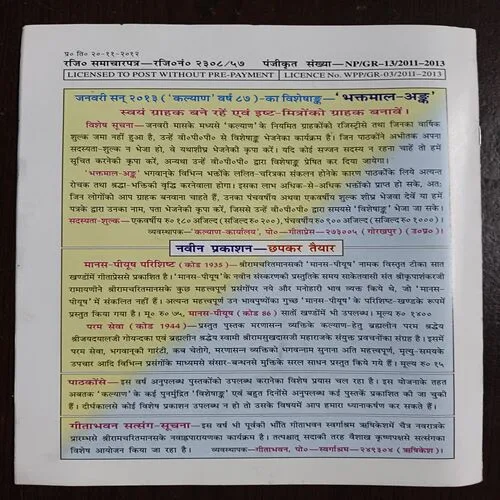 प्र० ति० २०-११-२०१२
रजि० समाचारपत्र—रजि०नं० २३०८/५७ पंजीकृत संख्या—NP/GR-13/2011-2013
LICENSED TO POST WITHOUT PRE-PAYMENT LICENCE No. WPP/GR-03/2011-2013
जनवरी सन् २०१३ ('कल्याण' वर्ष ८७)-का विशेषाङ्क—'भक्तमाल-अङ्क'
स्वयं ग्राहक बने रहें एवं इष्ट-मित्रोंको ग्राहक बनावें।
विशेष सूचना—जनवरी मासके मध्यसे 'कल्याण' के नियमित ग्राहकोंको रजिस्ट्रीसे तथा जिनका वार्षिक
शुल्क जमा नहीं हुआ है, उन्हें वी०पी०पी० से विशेषाङ्क भेजनेका कार्यक्रम है। जिन पाठकोंने अभीतक अपना
सदस्यता-शुल्क न भेजा हो, वे यथाशीघ्र भेजनेकी कृपा करें। यदि कोई सज्जन सदस्य न रहना चाहें तो हमें
सूचित करनेकी कृपा करें, अन्यथा उन्हें वी०पी०पी० द्वारा विशेषाङ्क प्रेषित कर दिया जायेगा।
'भक्तमाल-अङ्क' भगवान्‌के विभिन्न भक्तोंके ललित-चरित्रका संकलन होनेके कारण पाठकोंके लिये अत्यन्त
रोचक तथा श्रद्धा-भक्तिकी वृद्धि करनेवाला होगा। इसका लाभ अधिक-से-अधिक भक्तोंको प्राप्त हो सके, अतः
जिन लोगोंको आप ग्राहक बनवाना चाहते हैं, उनका पंचवर्षीय अथवा एकवर्षीय शुल्क शीघ्र भेजवा देवें या हमें
पत्रके द्वारा उनका नाम, पता भेजनेकी कृपा करें, जिससे उन्हें वी०पी०पी० द्वारा समयसे 'विशेषाङ्क' भेजा जा सके।
सदस्यता-शुल्क—एकवर्षीय रु० १८० अजिल्द (सजिल्द रु० २००), पंचवर्षीय रु० ९०० अजिल्द (सजिल्द रु० १०००)।
व्यवस्थापक-'कल्याण-कार्यालय', पो०—गीताप्रेस—२७३००५ (गोरखपुर) (उ०प्र०)।
नवीन प्रकाशन—छपकर तैयार
मानस-पीयूष परिशिष्ट (कोड 1935)—श्रीरामचरितमानसकी 'मानस-पीयूष' नामक विस्तृत टीका सात
खण्डोंमें गीताप्रेससे प्रकाशित है। 'मानस-पीयूष' के नवीन संस्करणकी प्रस्तुतिके समय साकेतवासी संत श्रीकृपाशंकरजी
रामायणीने श्रीरामचरितमानसके कुछ महत्त्वपूर्ण प्रसंगोंपर नये और मनोहारी भाव व्यक्त किये थे, जो 'मानस-
पीयूष' में संकलित नहीं हैं। अत्यन्त महत्त्वपूर्ण उन भावपुष्पोंका गुच्छ 'मानस-पीयूष' के परिशिष्ट-खण्डके रूपमें
प्रस्तुत किया गया है। मू० रु० ७५, मानस-पीयूष (कोड 86) सातों खण्डोंमें भी उपलब्ध। मूल्य रु० १४००
परम सेवा (कोड 1944)—प्रस्तुत पुस्तक मरणासन्न व्यक्तिके कल्याण-हेतु ब्रह्मलीन परम श्रद्धेय
श्रीजयदयालजी गोयन्दका एवं ब्रह्मलीन श्रद्धेय स्वामी श्रीरामसुखदासजी महाराजके संयुक्त प्रवचनोंका संग्रह है। इसमें
परम सेवा, भगवान्‌की गारंटी, कब चेतोगे, मरणासन्न व्यक्तिको भगवन्नाम सुनाना अति महत्त्वपूर्ण, मृत्यु-समयके
उपचार आदि विभिन्न प्रसंगोंके माध्यमसे संसार-बन्धनसे मुक्तिके सरल साधन प्रस्तुत किये गये हैं। मूल्य रु० १५
पाठकोंसे—इस वर्ष अनुपलब्ध पुस्तकोंको उपलब्ध करानेका विशेष प्रयास चल रहा है। इस योजनाके तहत
अबतक 'कल्याण'के कई पुनर्मुद्रित 'विशेषाङ्क' एवं बहुत दिनोंसे अनुपलब्ध कई पुस्तकें प्रकाशित की जा चुकी
हैं। दीर्घकालसे कोई विशेष प्रकाशन उपलब्ध न हो तो उसके विषयमें आप हमारा ध्यानाकर्षण कर सकते हैं।
गीताभवन सत्संग-सूचना—इस वर्ष भी पूर्वकी भाँति गीताभवन स्वर्गाश्रम ऋषिकेशमें चैत्र नवरात्रके
प्रारम्भसे श्रीरामचरितमानसके नवाह्नपारायणका कार्यक्रम है। तत्पश्चात् सदाकी तरह वैशाख कृष्णपक्षसे सत्संगका
विशेष आयोजन किया जा रहा है। व्यवस्थापक-गीताभवन, पो०—स्वर्गाश्रम—२४९३०४ (ऋषिकेश)।